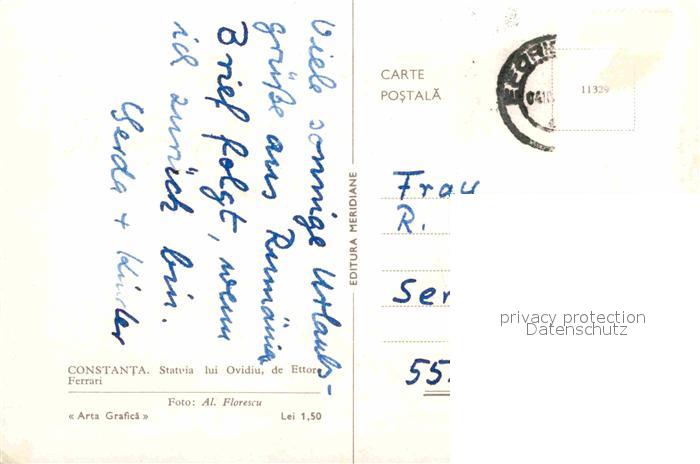 Viele sonnige Urlaubs-
grüße aus Rumänien
Brief folgt, wenn
ich zurück bin.
Gerda + Kinder
CONSTANȚA. Statuia lui Ovidiu, de Ettore
Ferrari
Foto: Al. Florescu
« Arta Grafică » Lei 1,50
EDITURA MERIDIANE
CARTE
POȘTALĂ
11329
Frau
R.
Ser
55
privacy protection
Datenschutz